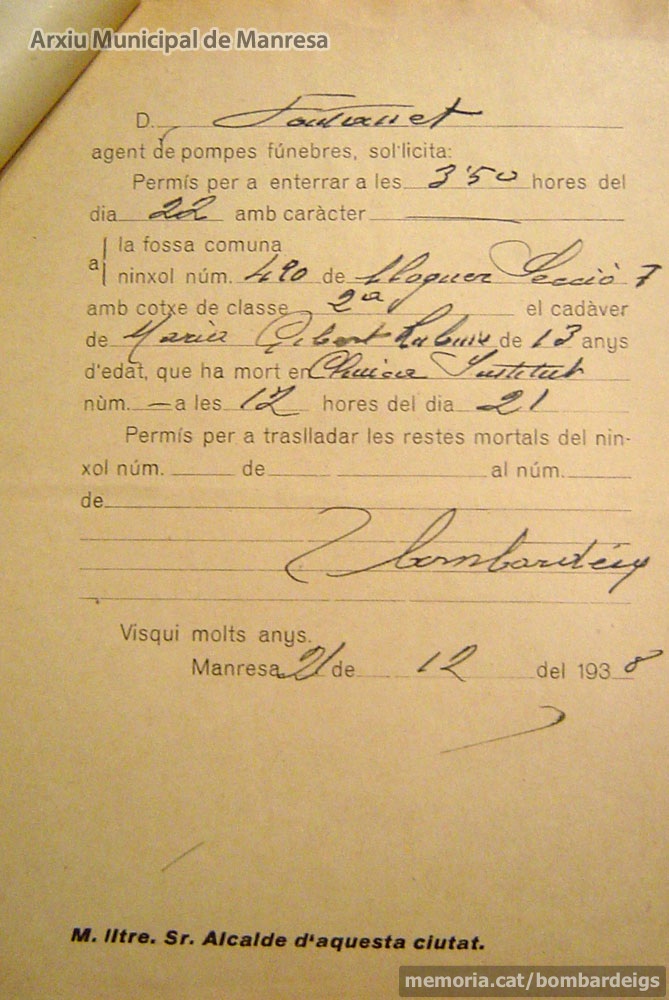 Arxiu Municipal de Manresa
D. Fontanet
agent de pompes fúnebres, sol·licita:
Permís per a enterrar a les 3'50 hores del
dia 22 amb caràcter
la fossa comuna
a
ninxol núm. 490 de lloguer Secció 7
amb cotxe de classe 2ª el cadàver
de Maria Gibert de 13 anys
d'edat, que ha mort en Clínica Institut
núm. — a les 12 hores del dia 21
Permís per a traslladar les restes mortals del nin-
xol núm. de al núm.
de
Bombardeig
Visqui molts anys.
Manresa 21 de 12 del 1938
M. Iltre. Sr. Alcalde d'aquesta ciutat.
memoria.cat/bombardeigs